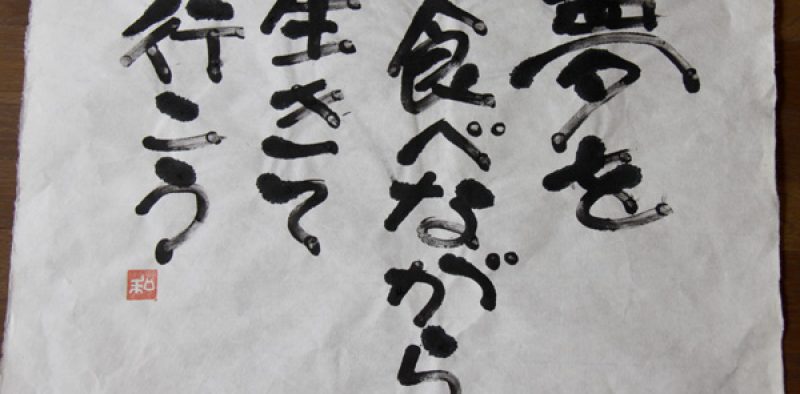 夢を
食べながら
生きて
行こう
和